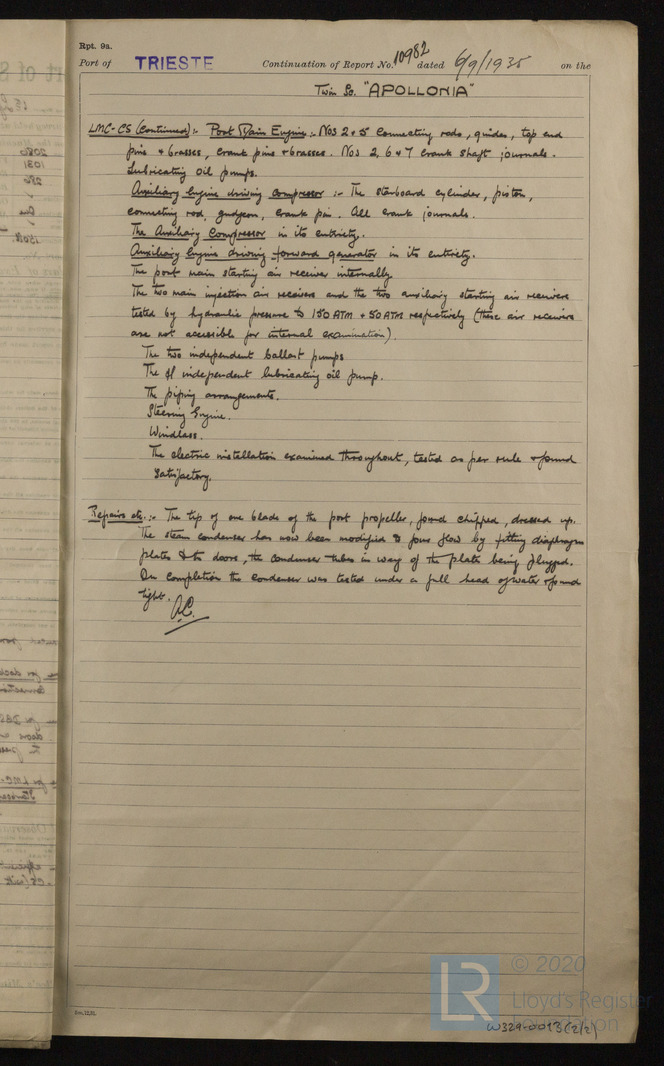 Rpt. 9a.
Port of TRIESTE Continuation of Report No. 10982 dated 6/9/1935 on the
Twin Sc. "APOLLONIA"
LMC-CS (Continued):- Port Main Engine:- Nos 2 & 5 connecting rods, guides, top end
pins & brasses, crank pins & brasses. Nos 2, 6 & 7 crank shaft journals.
Lubricating oil pumps.
Auxiliary Engine driving compressor :- The starboard cylinder, piston,
connecting rod, gudgeon, crank pin. All crank journals.
The Auxiliary Compressor in its entirety.
Auxiliary Engine driving forward generator in its entirety.
The port main starting air receiver internally.
The two main injection air receivers and the two auxiliary starting air receivers
tested by hydraulic pressure to 150 ATM & 50 ATM respectively (these air receivers
are not accessible for internal examination).
The two independent ballast pumps
The independent lubricating oil pump.
The piping arrangements.
Steering Engine.
Windlass.
The electric installation examined throughout, tested as per rule & found
satisfactory.
Repairs etc.:- The tip of one blade of the port propeller, found chipped, dressed up.
The steam condenser has now been modified to four flow by fitting diaphragm
plates to the doors, the condenser tubes in way of the plates being plugged.
On completion the condenser was tested under a full head of water & found
tight.
A.C.
© 2020
LR
Lloyd's Register
Foundation
W329-0013(2/2)